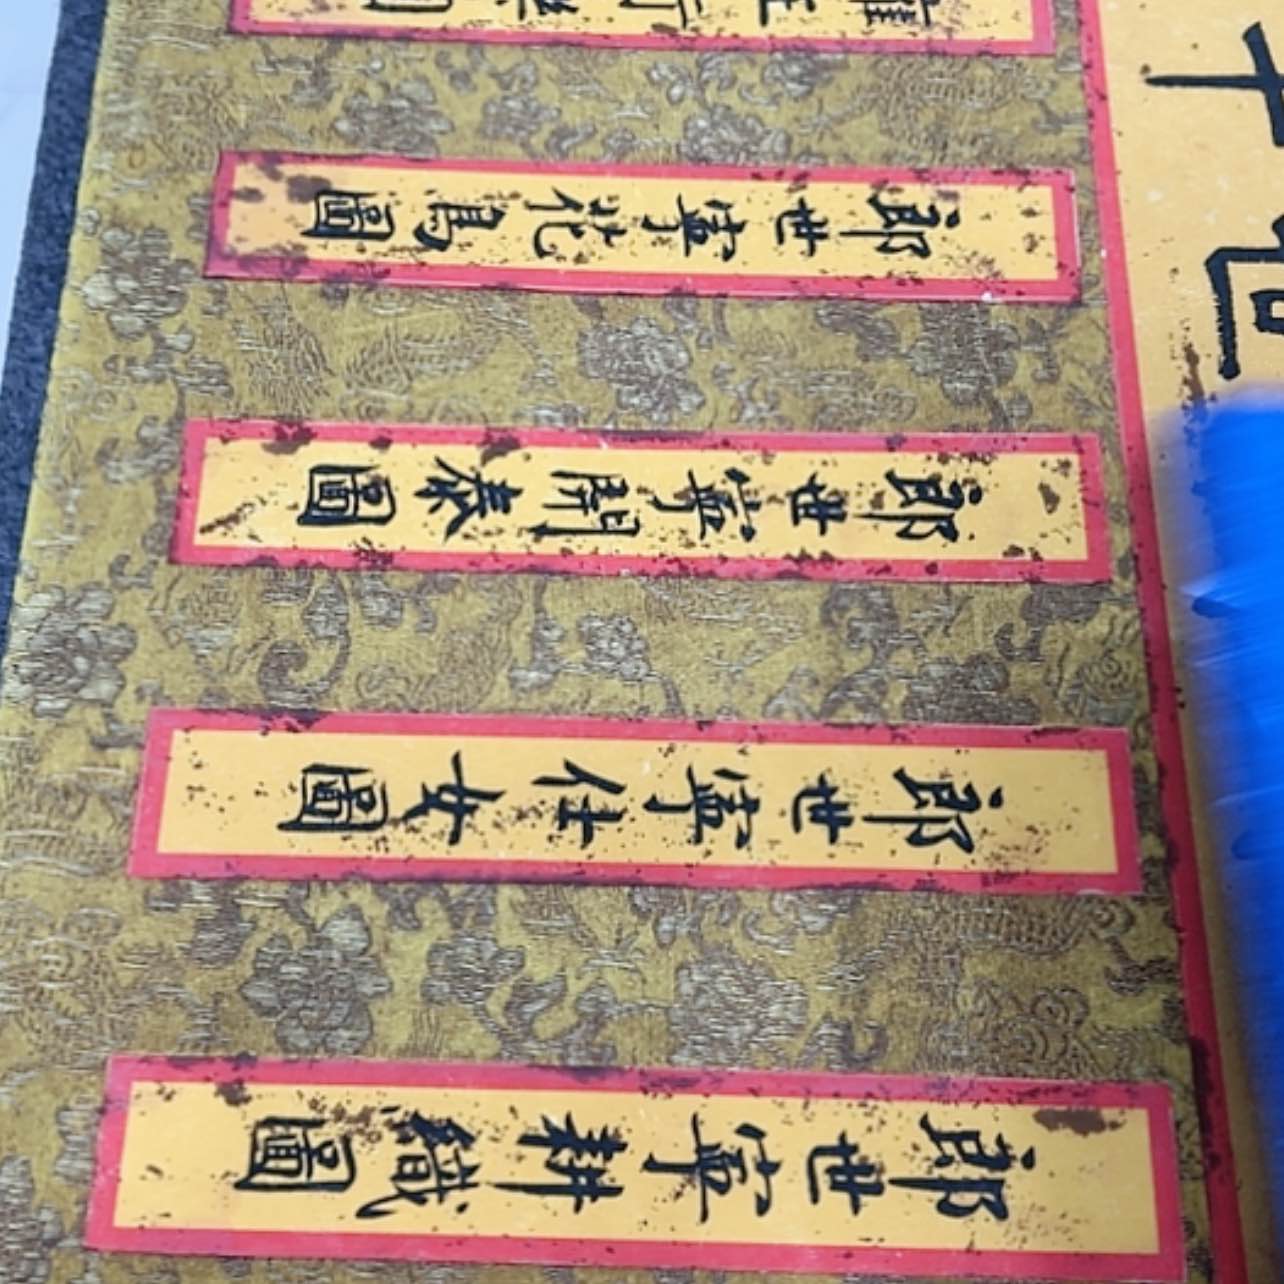 郎世寧耕織圖
郎世寧仕女圖
郎世寧開泰圖
郎世寧花鳥圖